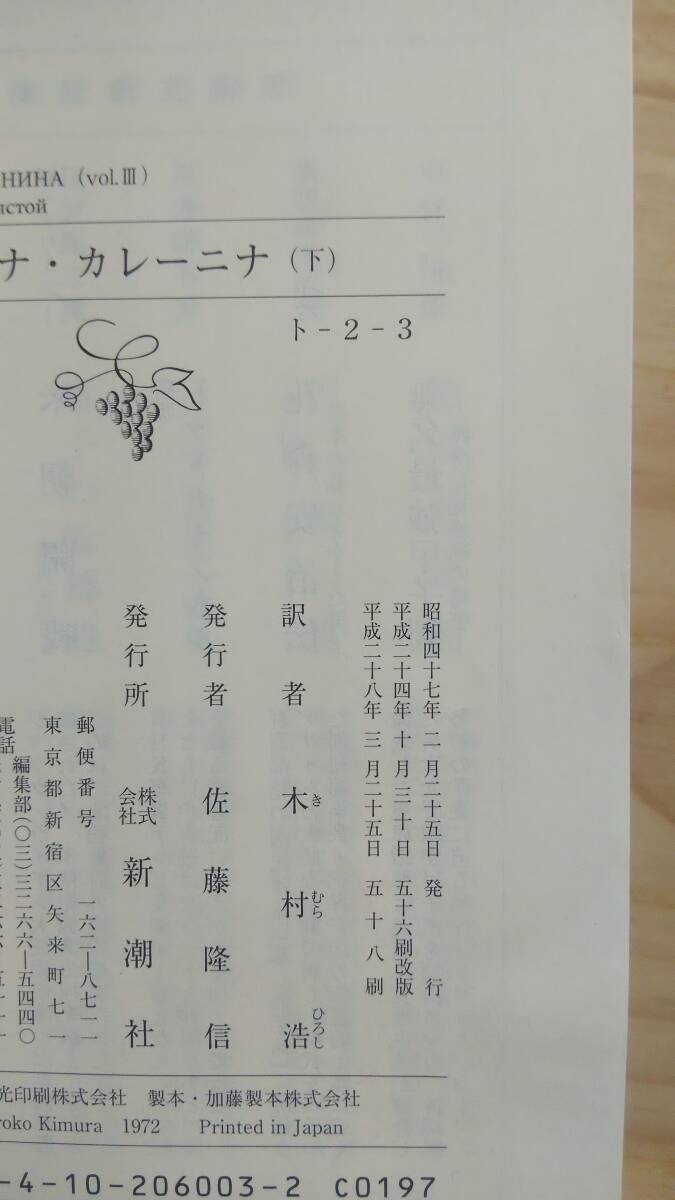 НИНА (vol.Ⅲ)
стой
ナ・カレーニナ(下)
ト-2-3
昭和四十七年 二 月二十五日 発 行
平成二十四年 十 月 三 十 日 五十六刷改版
平成二十八年 三 月二十五日 五 十 八 刷
訳者 木村浩
き むら ひろし
発行者 佐藤隆信
発行所 株式会社 新潮社
郵便番号 一六二―八七一一
東京都新宿区矢来町七一
編集部(〇三)三二六六―五四四〇
電話
光印刷株式会社 製本・加藤製本株式会社
roko Kimura 1972 Printed in Japan
-4-10-206003-2 C0197